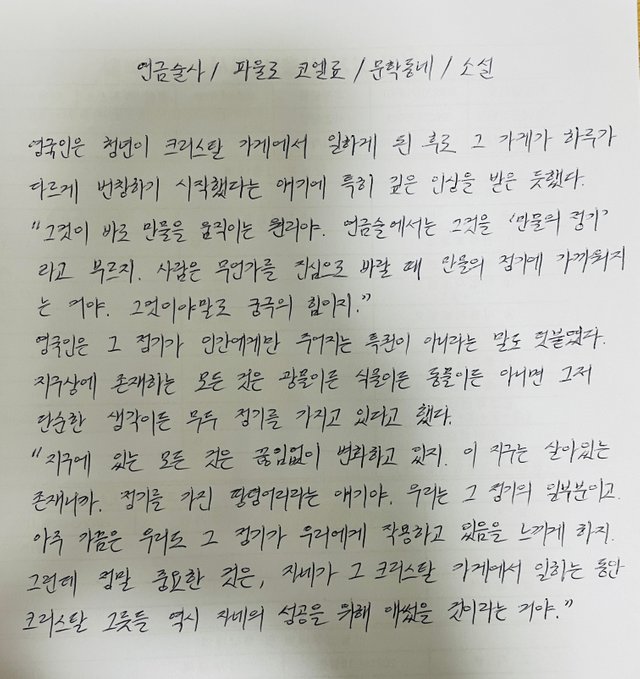 연금술사 / 파울로 코엘료 / 문학동네 / 소설
영국인은 청년이 크리스탈 가게에서 일하게 된 후로 그 가게가 하루가
다르게 번창하기 시작했다는 얘기에 특히 깊은 인상을 받은 듯했다.
"그것이 바로 만물을 움직이는 원리야. 연금술에서는 그것을 '만물의 정기'
라고 부르지. 사람은 무언가를 진심으로 바랄 때 만물의 정기에 가까워지
는 거야. 그것이야말로 궁극의 힘이지."
영국인은 그 정기가 인간에게만 주어지는 특권이 아니라는 말도 덧붙였다.
지구상에 존재하는 모든 것은 광물이든 식물이든 동물이든 아니면 그저
단순한 생각이든 모두 정기를 가지고 있다고 했다.
"지구에 있는 모든 것은 끊임없이 변화하고 있지. 이 지구는 살아있는
존재니까. 정기를 가진 땅덩어리라는 얘기야. 우리는 그 정기의 일부분이고.
아주 가끔은 우리도 그 정기가 우리에게 작용하고 있음을 느끼게 하지.
그런데 정말 중요한 것은, 자네가 그 크리스탈 가게에서 일하는 동안
크리스탈 그릇들 역시 자네의 성공을 위해 애썼을 것이라는 거야."